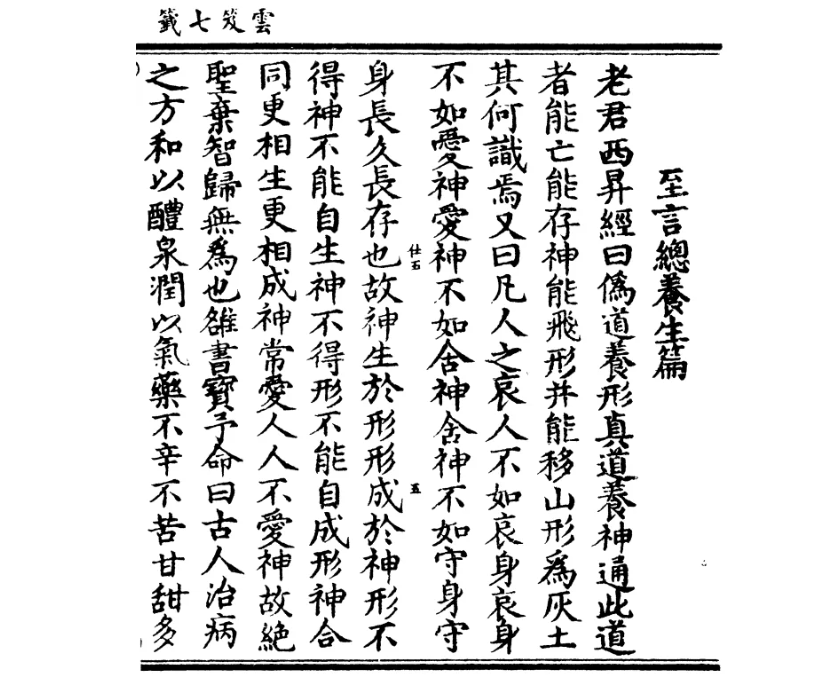 雲笈七籤
至言總養生篇
老君西昇經曰偽道養形真道養神通此道
者能亡能存神能飛形并能移山形為灰土
其何識焉又曰凡人之哀人不如哀身哀身
不如愛神愛神不如舍神舍神不如守身守
仕五
五
身長久長存也故神生於形形成於神形不
得神不能自生神不得形不能自成形神合
同更相生更相成神常愛人人不愛神故絶
聖棄智歸無為也雒書寶予命曰古人治病
之方和以醴泉潤以氣藥不辛不苦甘甜多